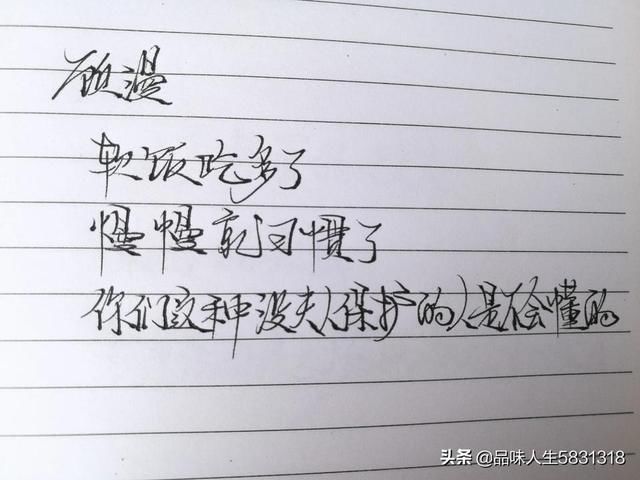 顾漫
软饭吃多了
慢慢就习惯了
你们这种没夫人保护的人是不会懂的
头条 @品味人生5831318